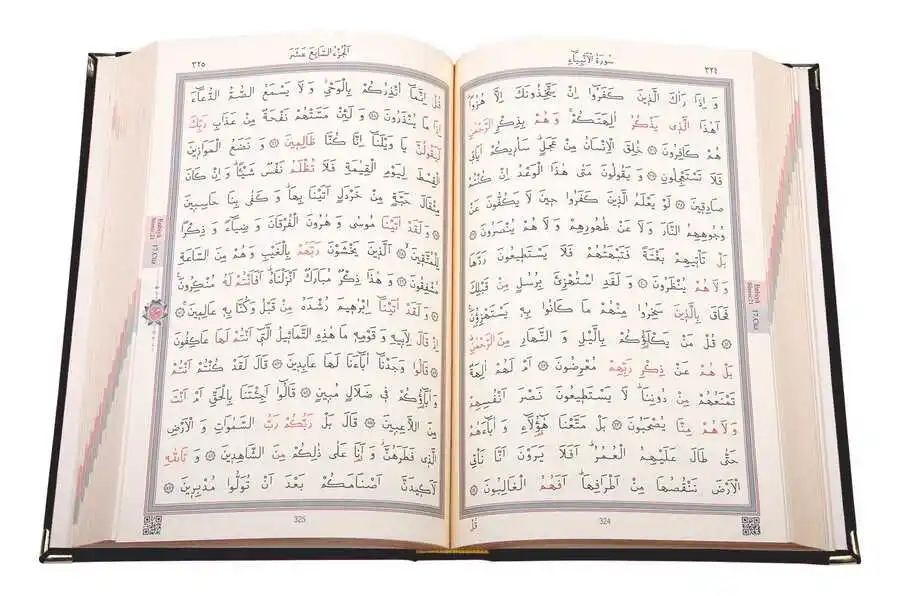 ٣٢٤ سُورَةُ الْاَنْبِيَاءِ
وَ اِذَا رَاٰكَ الَّذ۪ينَ كَفَرُٓوا اِنْ يَتَّخِذُونَكَ اِلَّا هُزُوًاۜ
اَهٰذَا الَّذ۪ي يَذْكُرُ اٰلِهَتَكُمْۚ وَ هُمْ بِذِكْرِ الرَّحْمٰنِ
هُمْ كَافِرُونَ ﴿٣٦﴾ خُلِقَ الْاِنْسَانُ مِنْ عَجَلٍۜ سَاُر۪يكُمْ اٰيَات۪ي
فَلَا تَسْتَعْجِلُونِ ﴿٣٧﴾ وَ يَقُولُونَ مَتٰى هٰذَا الْوَعْدُ اِنْ كُنْتُمْ
صَادِق۪ينَ ﴿٣٨﴾ لَوْ يَعْلَمُ الَّذ۪ينَ كَفَرُوا ح۪ينَ لَا يَكُفُّونَ عَنْ
وُجُوهِهِمُ النَّارَ وَ لَا عَنْ ظُهُورِهِمْ وَ لَا هُمْ يُنْصَرُونَ ﴿٣٩﴾
بَلْ تَأْت۪يهِمْ بَغْتَةً فَتَبْهَتُهُمْ فَلَا يَسْتَط۪يعُونَ رَدَّهَا
وَ لَا هُمْ يُنْظَرُونَ ﴿٤٠﴾ وَ لَقَدِ اسْتُهْزِئَ بِرُسُلٍ مِنْ قَبْلِكَ
فَحَاقَ بِالَّذ۪ينَ سَخِرُوا مِنْهُمْ مَا كَانُوا بِه۪ يَسْتَهْزِؤُ۫نَ
﴿٤١﴾ قُلْ مَنْ يَكْلَؤُكُمْ بِالَّيْلِ وَ النَّهَارِ مِنَ الرَّحْمٰنِۜ
بَلْ هُمْ عَنْ ذِكْرِ رَبِّهِمْ مُعْرِضُونَ ﴿٤٢﴾ اَمْ لَهُمْ اٰلِهَةٌ
تَمْنَعُهُمْ مِنْ دُونِنَاۜ لَا يَسْتَط۪يعُونَ نَصْرَ اَنْفُسِهِمْ
وَ لَا هُمْ مِنَّا يُصْحَبُونَ ﴿٤٣﴾ بَلْ مَتَّعْنَا هٰٓؤُ۬لَٓاءِ وَ اٰبَٓاءَهُمْ
حَتّٰى طَالَ عَلَيْهِمُ الْعُمُرُۜ اَفَلَا يَرَوْنَ اَنَّا نَأْتِي
الْاَرْضَ نَنْقُصُهَا مِنْ اَطْرَافِهَاۜ اَفَهُمُ الْغَالِبُونَ ﴿٤٤﴾
قُلْ
324
Enbiyâ
Sûresi:21
17.Cüz
اَلْجُزْءُ السَّابِعَ عَشَرَ ٣٢٥
قُلْ اِنَّمَٓا اُنْذِرُكُمْ بِالْوَحْيِۘ وَ لَا يَسْمَعُ الصُّمُّ الدُّعَٓاءَ
اِذَا مَا يُنْذَرُونَ ﴿٤٥﴾ وَ لَئِنْ مَسَّتْهُمْ نَفْحَةٌ مِنْ عَذَابِ رَبِّكَ
لَيَقُولُنَّ يَا وَيْلَنَٓا اِنَّا كُنَّا ظَالِم۪ينَ ﴿٤٦﴾ وَ نَضَعُ الْمَوَاز۪ينَ
الْقِسْطَ لِيَوْمِ الْقِيٰمَةِ فَلَا تُظْلَمُ نَفْسٌ شَيْـًٔاۜ وَ اِنْ كَانَ
مِثْقَالَ حَبَّةٍ مِنْ خَرْدَلٍ اَتَيْنَا بِهَاۜ وَ كَفٰى بِنَا حَاسِب۪ينَ
﴿٤٧﴾ وَ لَقَدْ اٰتَيْنَا مُوسٰى وَ هٰرُونَ الْفُرْقَانَ وَ ضِيَٓاءً وَ ذِكْرًا
لِلْمُتَّق۪ينَۙ ﴿٤٨﴾ اَلَّذ۪ينَ يَخْشَوْنَ رَبَّهُمْ بِالْغَيْبِ وَ هُمْ مِنَ السَّاعَةِ
مُشْفِقُونَ ﴿٤٩﴾ وَ هٰذَا ذِكْرٌ مُبَارَكٌ اَنْزَلْنَاهُۜ اَفَاَنْتُمْ لَهُ مُنْكِرُونَ۟
﴿٥٠﴾ وَ لَقَدْ اٰتَيْنَٓا اِبْرٰه۪يمَ رُشْدَهُ مِنْ قَبْلُ وَ كُنَّا بِه۪ عَالِم۪ينَۚ ﴿٥١﴾
اِذْ قَالَ لِاَب۪يهِ وَ قَوْمِه۪ مَا هٰذِهِ التَّمَاث۪يلُ الَّت۪ٓي اَنْتُمْ لَهَا عَاكِفُونَ
﴿٥٢﴾ قَالُوا وَجَدْنَٓا اٰبَٓاءَنَا لَهَا عَابِد۪ينَ ﴿٥٣﴾ قَالَ لَقَدْ كُنْتُمْ اَنْتُمْ
وَ اٰبَٓاؤُ۬كُمْ ف۪ي ضَلَالٍ مُب۪ينٍ ﴿٥٤﴾ قَالُٓوا اَجِئْتَنَا بِالْحَقِّ اَمْ اَنْتَ
مِنَ اللَّاعِب۪ينَ ﴿٥٥﴾ قَالَ بَلْ رَبُّكُمْ رَبُّ السَّمٰوَاتِ وَ الْاَرْضِ
الَّذ۪ي فَطَرَهُنَّۘ وَ اَنَا عَلٰى ذٰلِكُمْ مِنَ الشَّاهِد۪ينَ ﴿٥٦﴾ وَ تَاللّٰهِ
لَاَك۪يدَنَّ اَصْنَامَكُمْ بَعْدَ اَنْ تُوَلُّوا مُدْبِر۪ينَ ﴿٥٧﴾
325
Enbiyâ
Sûresi:21
17.Cüz